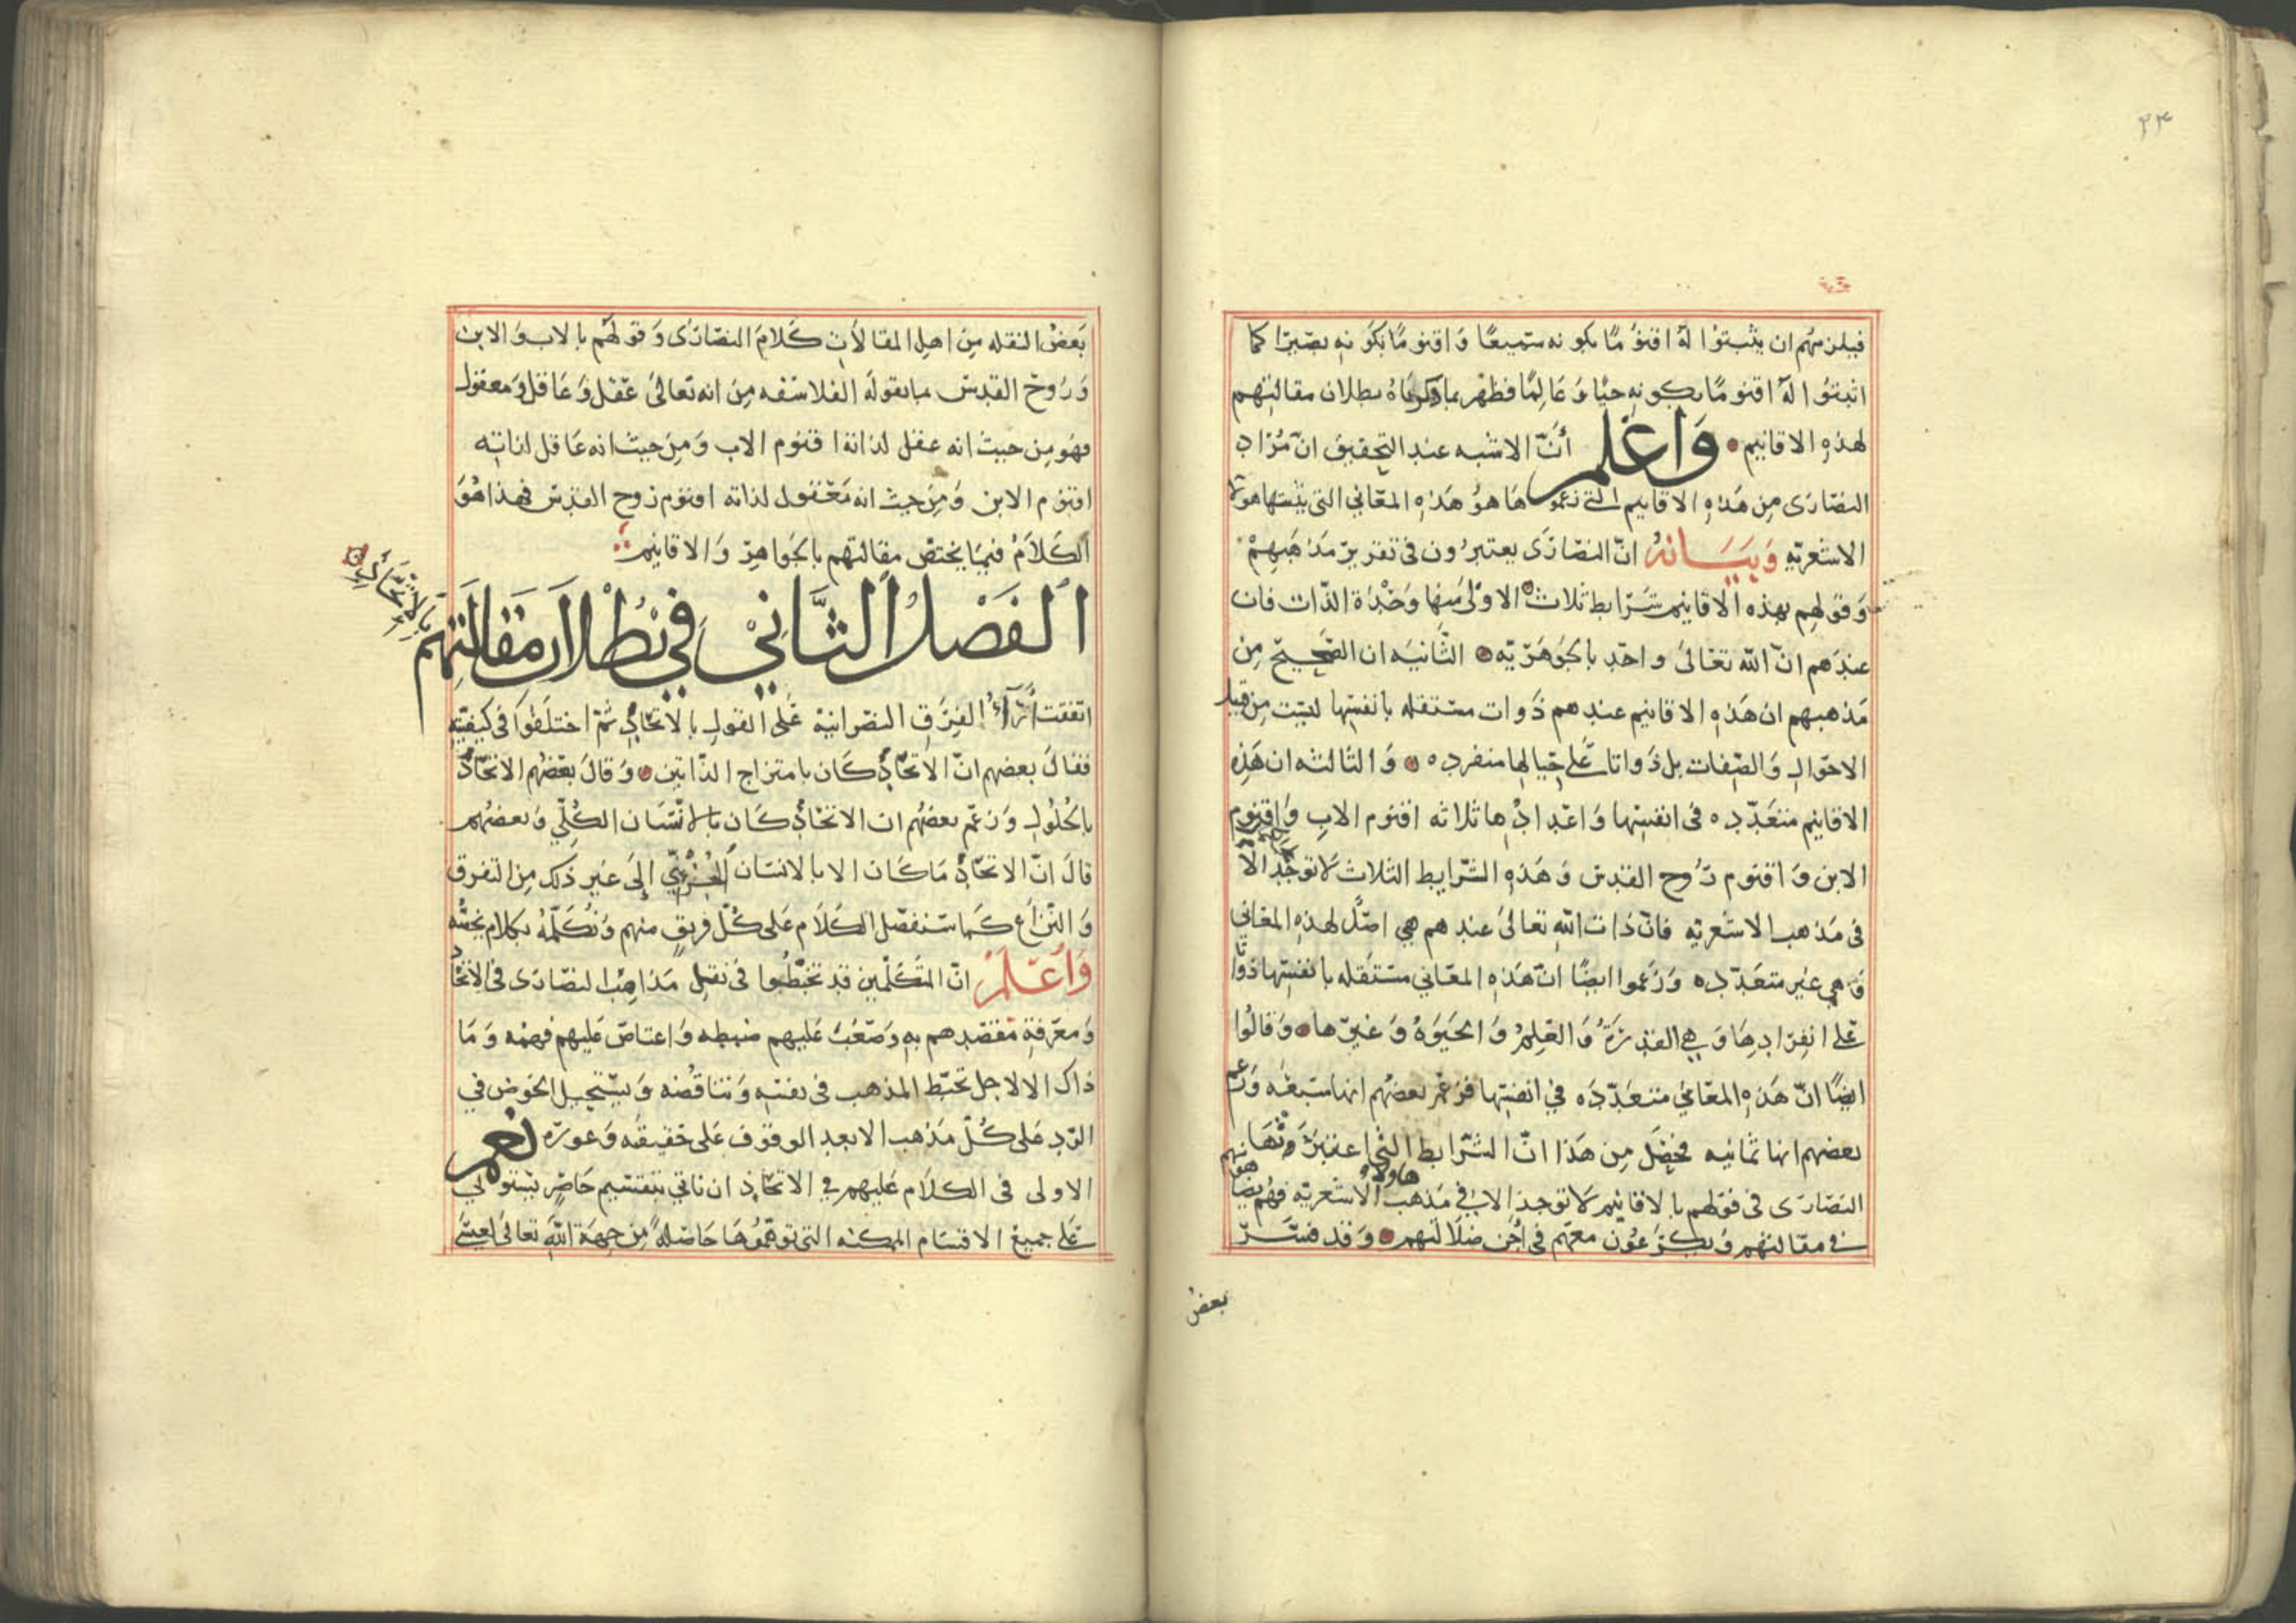 ٣٣
فيلزمهم ان يثبتوا لَهُ اقنوُمًا بكونه سَميعًا وَاقنومًا بكَونِهِ بصَيرًا كما
اثبَتوُا لَهُ اقنومًا بكونِهِ حيًّا وَعَالِمًا فظهَر بما ذكرناهُ بطلان مقالتهم
لهذِهِ الاقانيم وَاعْلم أنَّ الاشبه عند التحقيق انّ مُرَاد
النصَارَى مِن هَذِهِ الاقانيم التي زعموها هوُ هَذِهِ المعَاني التى يثبتها هؤلا
الاشعَريّه وَبَيَانهُ انّ النصَارَى يعتبرُون فى تقرير مَذهَبِهِمْ
وَقولهِم بهذه الاقانيم شَرَايط ثلاث الاوْلىَ مِنهَا وَحْدَة الذّات فان
عندَهم انّ الله تعَالىَ واحدٍ بالجَوهَريّه الثَّانيَه ان الصَّحِيحْ مِن
مَذهبهم ان هَذِهِ الاقانيم عندهم ذَوات مستقله بانفسِها ليسَت مِن قبيل
الاحوَالِ وَالصِّفات بل ذَواتا عَلى حِيالِها منفرده وَالثالثه ان هَذِهِ
الاقانيم متعَدّده فى انفسِها وَاعْدادْها ثلاثه اقنوم الابِ وَاقنوم
الابن وَاقنوم رُوح القدِس وَهَذِهِ الشرَايط الثلاث لا توجَدْ الا
فى مَذهب الاشعريّه فانّ ذات اللّهِ تعَالىَ عندهم هي اصْل لهذِهِ المعَاني
وَهي غير متعَدّده وَزعَموا ايضًا انّ هَذِهِ المعَاني مستقله بانفسِها ذوَاتا
عَلى انفِرَادِهَا وَهِي القدرَةُ وَالعِلمُ وَالحَيَوة وَغيرهَا وَقالُوا
ايضًا انّ هَذِهِ المعَاني متعَدّدَه في انفسِها فزعَمَ بعضُهم انهاسَبعَه وَزعم
بعضهم انها ثمانيه فحصَل مِن هَذا انّ الشرَايط التي اعتبَرَوْهَا
النصَارَى فى قولهم بالاقانيم لا توجد الا في مَذهب هاولاء الاشعريّه فهُم يضاهونهم
في مقالتهم وَيكرَعُون معَهم فى أجن ضَلالتهم وَقد فسَّر
بعض
بَعضُ النقله مِن اهلِ المقالاتِ كَلامَ النصَارَى وَقولهُم بالاب وَالابن
وَرُوحْ القدِس مما يقوله الفلاسفه مِن انه تعَالىَ عَقل وَعَاقل وَمعقول
فهوَ مِن حيث انه عقل لذاتهَ اقنوم الاب وَمِن حيث انه عَاقل لذاتِه
اقنوم الابن وَمِن حيث انه مَعْقول لذاته اقنوم رُوح القدِس فهذا هُوَ
الكلاَمُ فيمَا يختصّ مقالتهم بالجَواهِر وَالاقانيم
الفَصْلُ الثَّاني في بُطْلاَن مَقَالَتِهم
بالاتِّحَادِ
اتفقت أرَآءُ الفِرَق النصرَانيهْ عَلى القول بالاتحَادِ ثمّ اختلَفُوا فى كيفيّتِه
فقال بعضهم انّ الاتحَّادْ كَان بامتزاج الذَّاتين وَقالَ بعَضُهم الاتحَّادْ
بالحُلُولِ وَزعَمَ بعضُهم ان الاتحَادْ كَان بالانسَان الكُلّي وَبعضُهم
قالَ انّ الاتحَادْ مَا كَان الا بالانسَان الْجُزئيّ إلَى غير ذَلك مِن التفرق
وَالنّزاع كَما سَنفصّل الكَلاَم عَلى كُلّ فريقٍ منهم وَنكلّمُهُ بكلام يخصُّه
وَاعْلَمْ انّ المتكَلّمين قد تخبّطُوا فى نقل مَذاهِبْ النصَارَى فى الاتحَاد
وَمعرَفةِ مَقصَدهم بهِ وَصَعُبَ عَليهم ضبطه وَاعتاصَ عَليهم فهمْه وَمَا
ذاك الا لاجل تخبّط المذهب فى نفسِه وَتناقُضه وَيَسْتحيل الخوض في
الرّد عَلى كُلّ مَذهب الا بعد الوقوف عَلى حَقيقتُه وَعورَه نعم
الاولى فى الكلاَم عَليهم في الاتحَاد ان ناتي بتقسيم حَاصرٍ يَستولي
عَلى جميع الاقسَام الممكنه التى توهّمُوْهَا حَاصَلهً مِن جِهَة اللّهِ تعَالىَ لعِيسَى